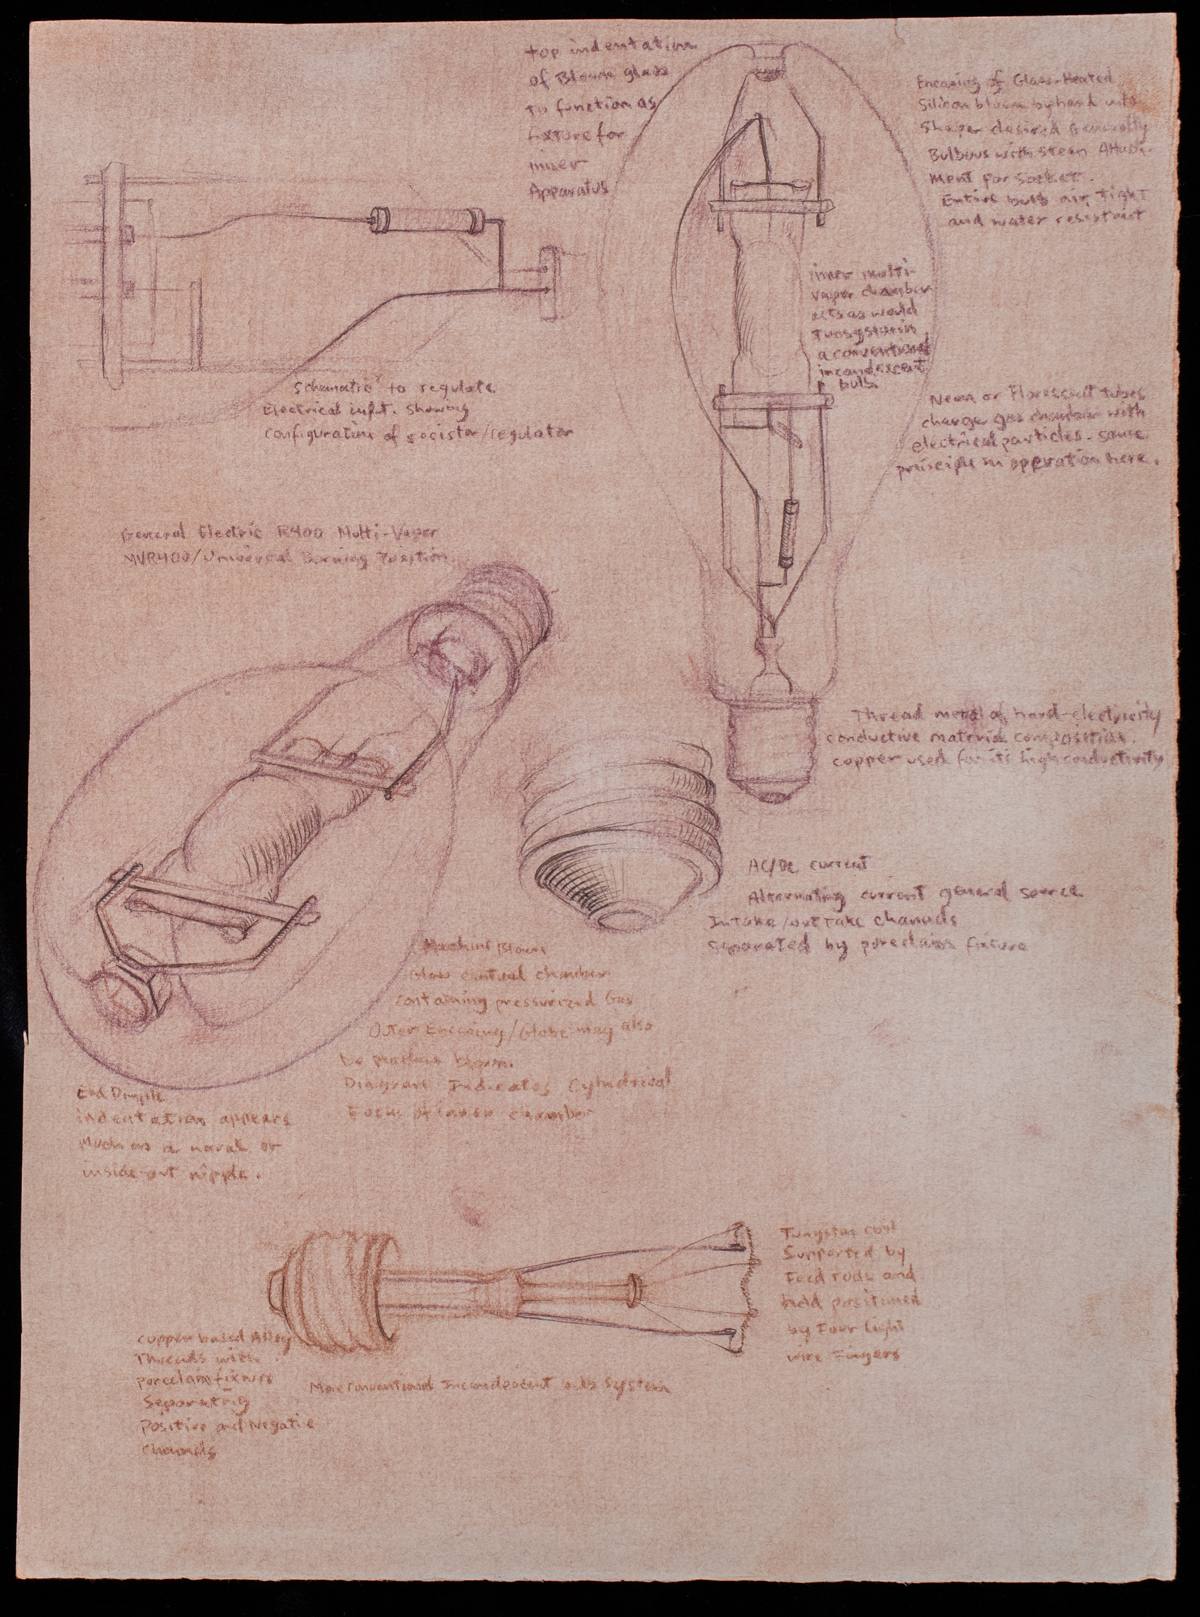 top indentation
of Blown glass
to function as
fixture for
inner
Apparatus
Encasing of Glass-Heated
Silicon blown by hand into
Shape desired Generally
Bulbous with stem Attach-
ment for socket.
Entire bulb air tight
and water resistant
inner multi-
vapor chamber
acts as would
Tungsten in
a conventional
incandescent
bulb
Schematic to regulate
Electrical input. Showing
Configuration of resistor/regulator
Neon or Floresent tubes
charge gas chamber with
electrical particles - same
principle in opperation here.
General Electric R400 Multi-Vapor
MVR400/Universal Burning Position
Thread metal of hard-electricity
conductive material composition.
copper used for its high conductivity
AC/DC current
Alternating current general source
Intake/outtake channels
separated by poreclain fixture
Machine Blown
Glow central chamber
containing pressurized Gas
Outer Encasing/Globe may also
be machine blown.
Diagram Indicates Cylindrical
Focus of inner chamber
End Dimple
indentation appears
Much as a naval or
inside-out nipple.
Tungsten coil
Supported by
Feed rods and
held positioned
by Four Light
wire Fingers
copper based Alloy
Threads with
porcelain fixture
Separating
Positive and Negative
Channels
More conventional Incandescent bulb System